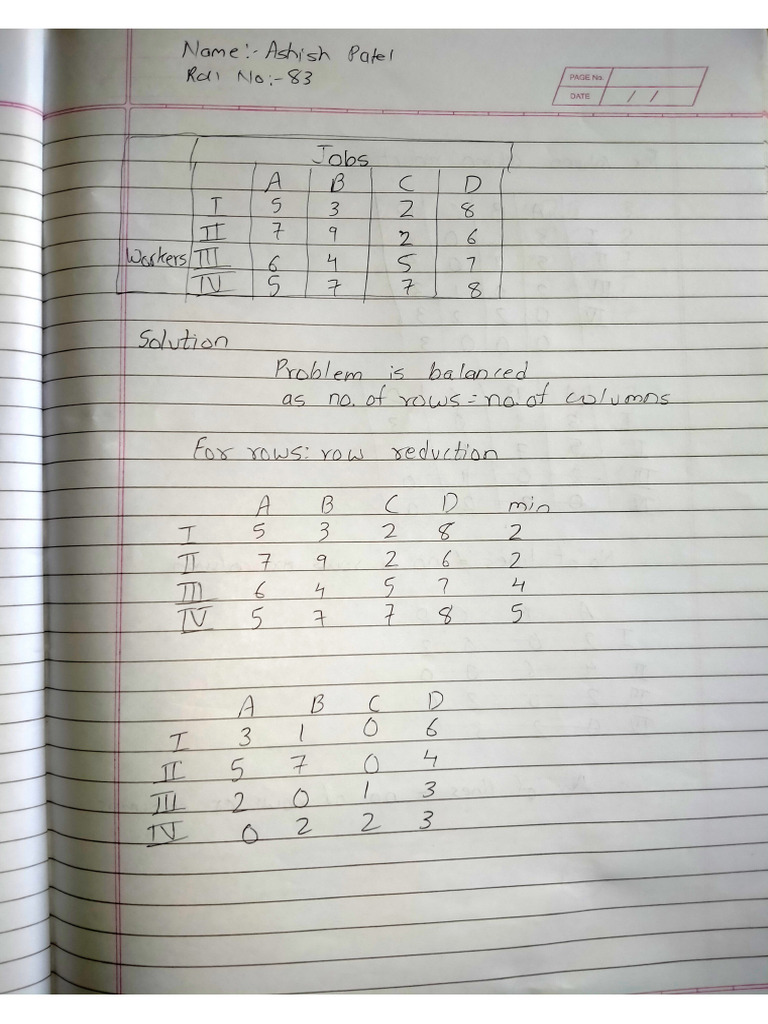 Name:- Ashish Patel
Roll No:-83
PAGE No.
DATE / /
Jobs
A B C D
I 5 3 2 8
II 7 9 2 6
Workers III 6 4 5 7
IV 5 7 7 8
Solution
Problem is balanced
as no. of rows = no. of columns
For rows: row reduction
A B C D min
I 5 3 2 8 2
II 7 9 2 6 2
III 6 4 5 7 4
IV 5 7 7 8 5
A B C D
I 3 1 0 6
II 5 7 0 4
III 2 0 1 3
IV 0 2 2 3